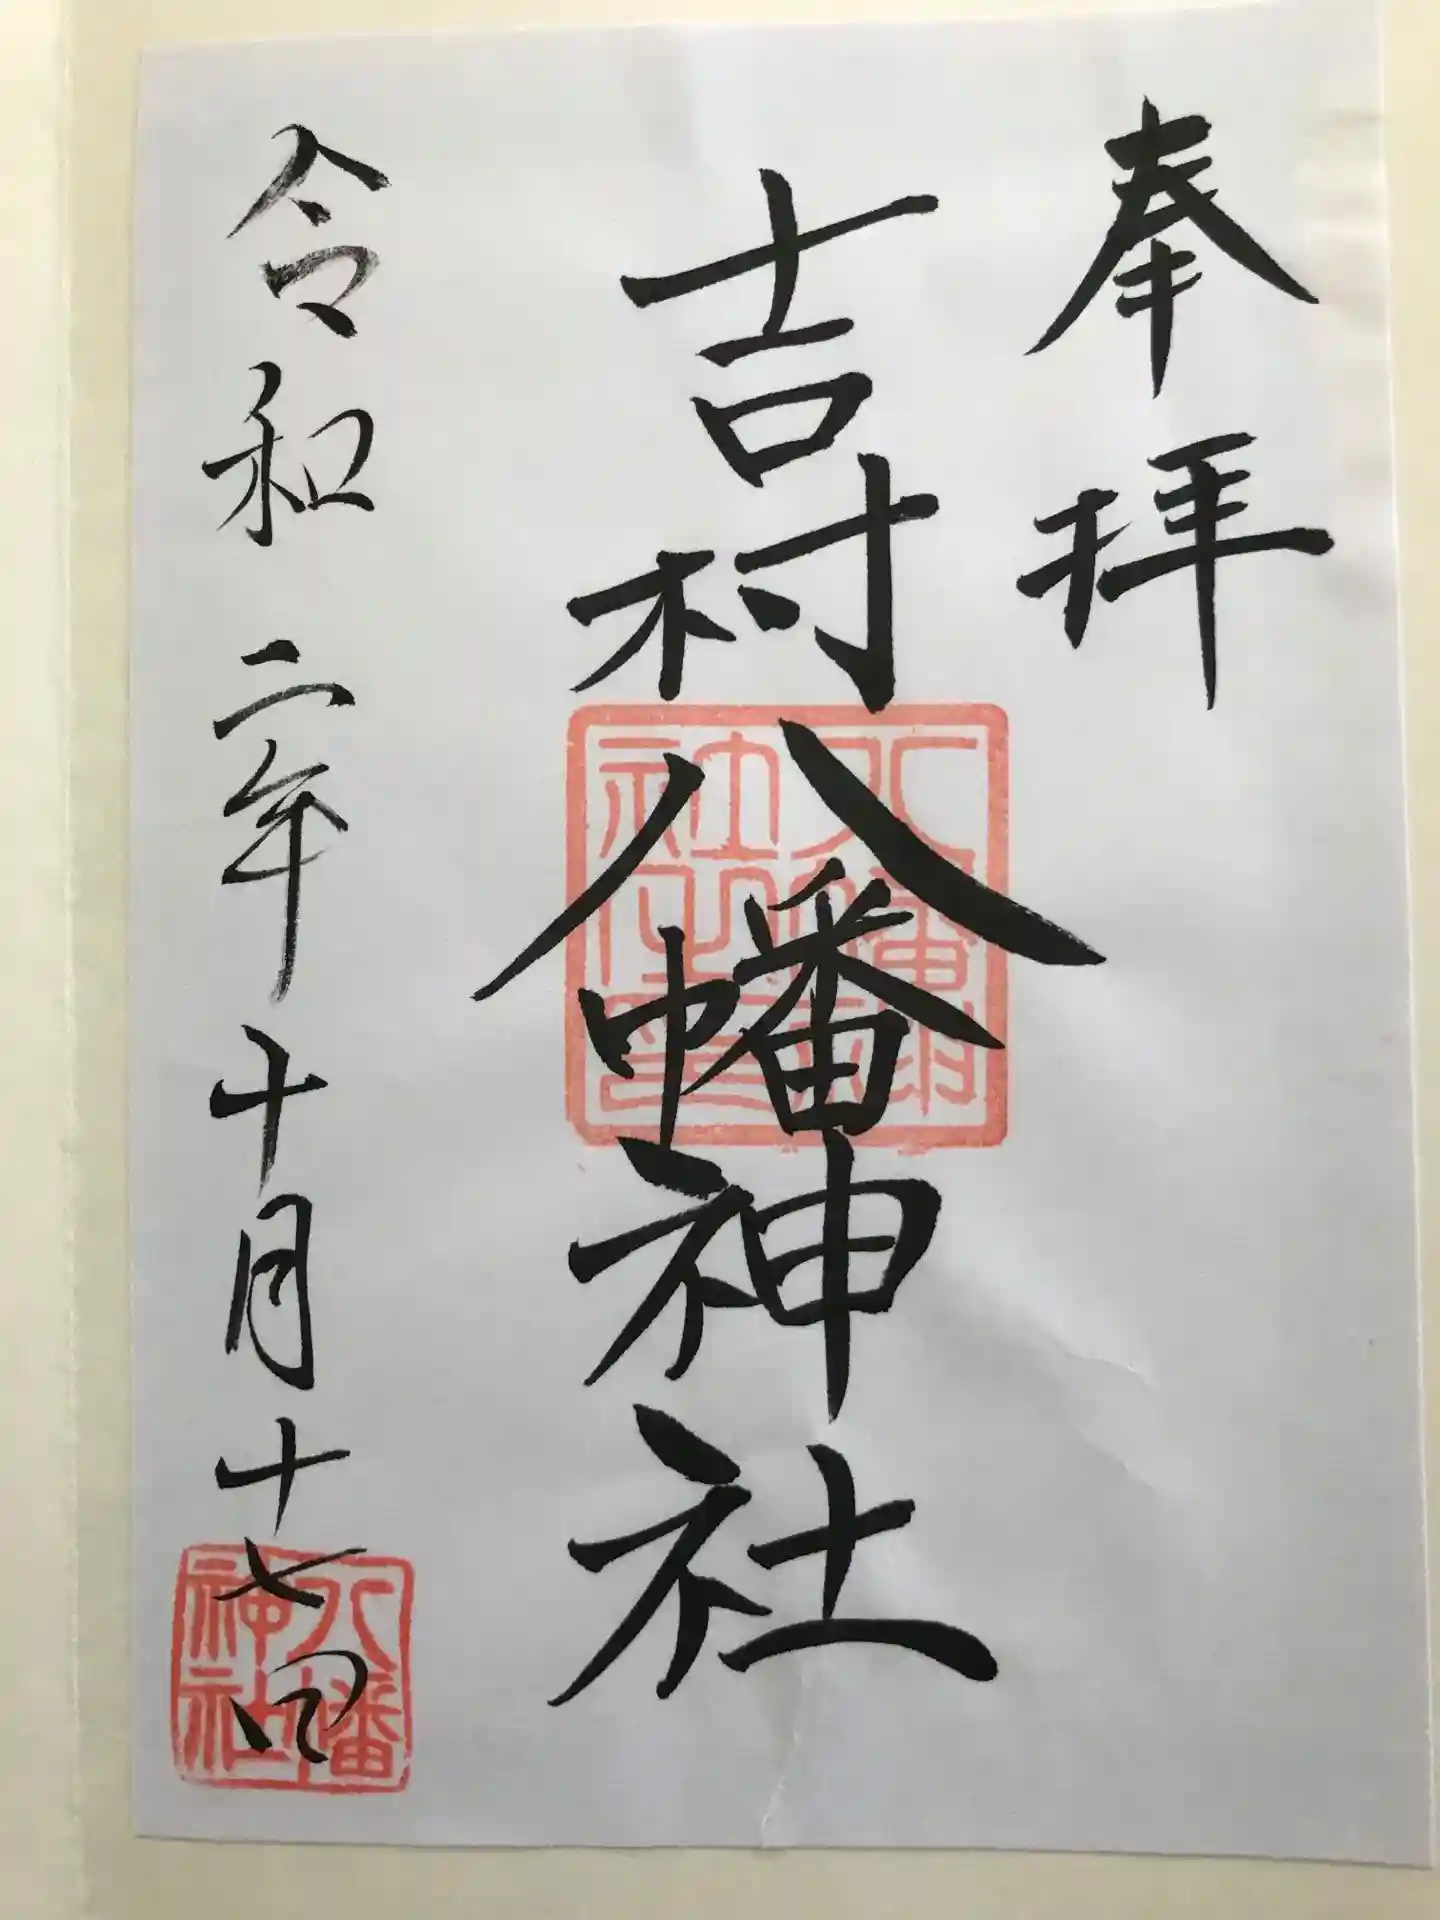 奉拝
吉村八幡神社
八幡神
社之印
令和二年十月十七日
八幡
神社